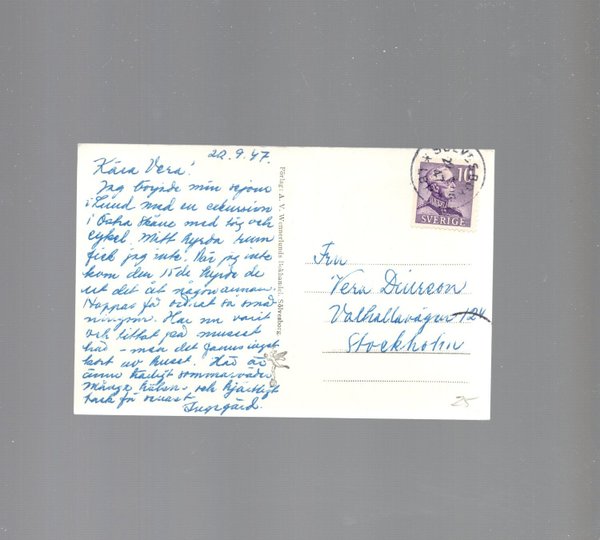 22.9.47.
Kära Vera!
Jag började min
i Lund med en
i Östra Skåne med tåg och
cykel. Mitt hyrda rum
fick jag inte. När jag inte
kom den 15de hyrde de
ut det åt någon annan.
Hoppas få ordnat
Har nu varit
och tittat på museet
här – men det fanns inget
kort av huset. Här är
ännu härligt sommarväder
Många hälsn. och hjärtligt
tack för senast
Ingegärd.
Förlag: A. V. Wennerlunds Bokhandel, Sölvesborg.
SÖLVESBORG
10
SVERIGE
Fru
Vera
Valhallavägen 124
Stockholm
25